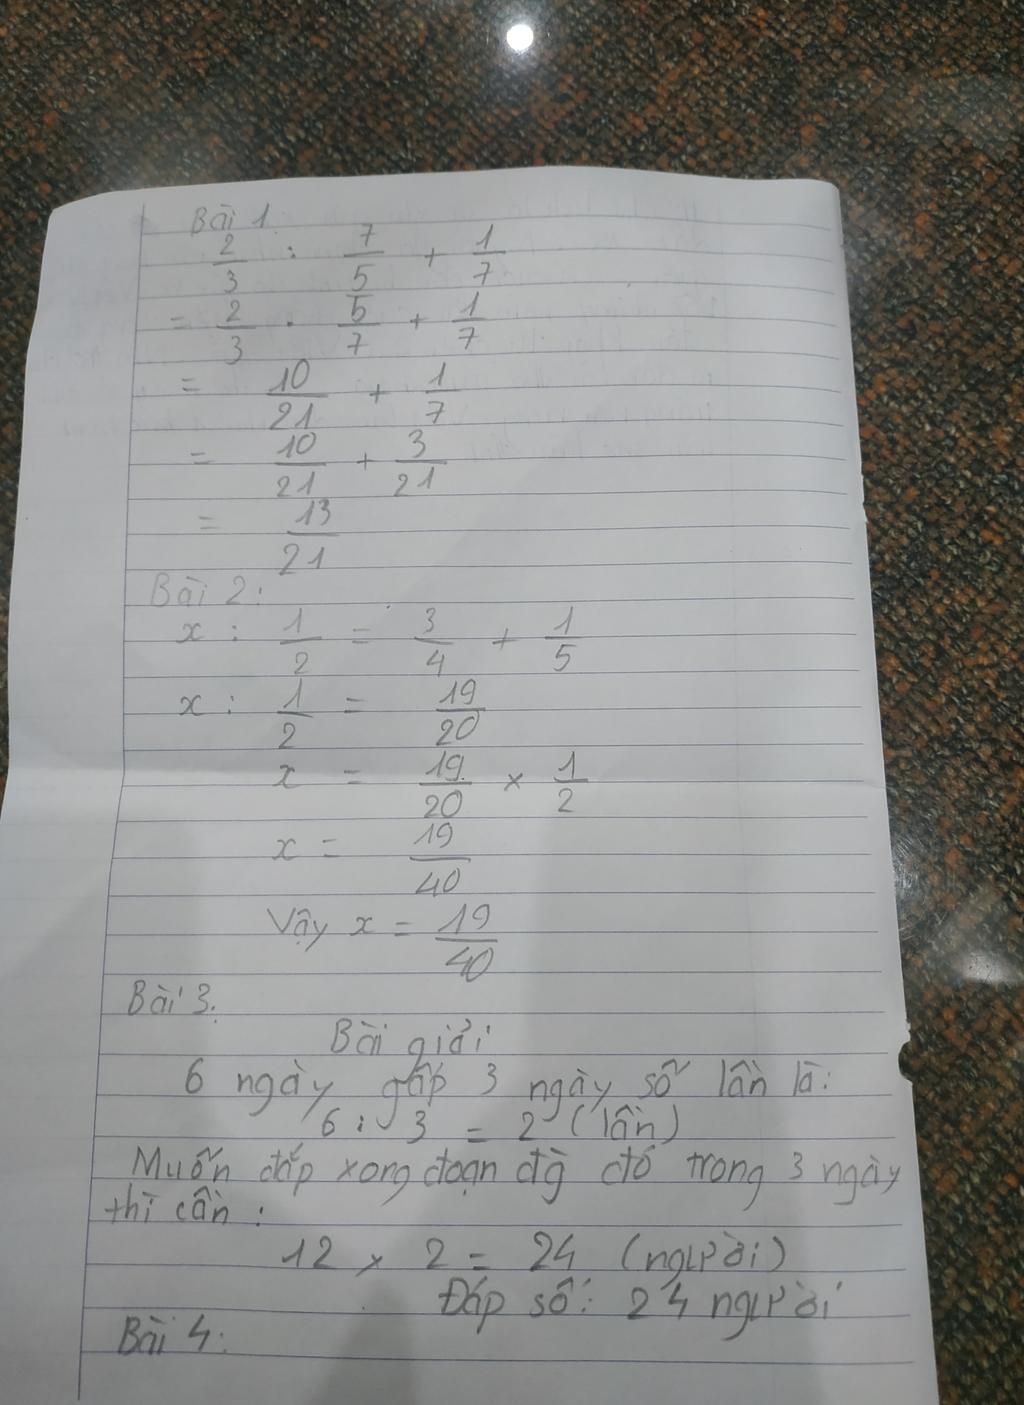 Bài 1.
2/3 : 7/5 + 1/7
= 2/3 . 5/7 + 1/7
= 10/21 + 1/7
= 10/21 + 3/21
= 13/21
Bài 2:
x : 1/2 = 3/4 + 1/5
x : 1/2 = 19/20
x = 19/20 × 1/2
x = 19/40
Vậy x = 19/40
Bài 3.
Bài giải
6 ngày gấp 3 ngày số lần là:
6 : 3 = 2 (lần)
Muốn đắp xong đoạn đg đó trong 3 ngày
thì cần:
12 × 2 = 24 (người)
Đáp số: 24 người
Bài 4: